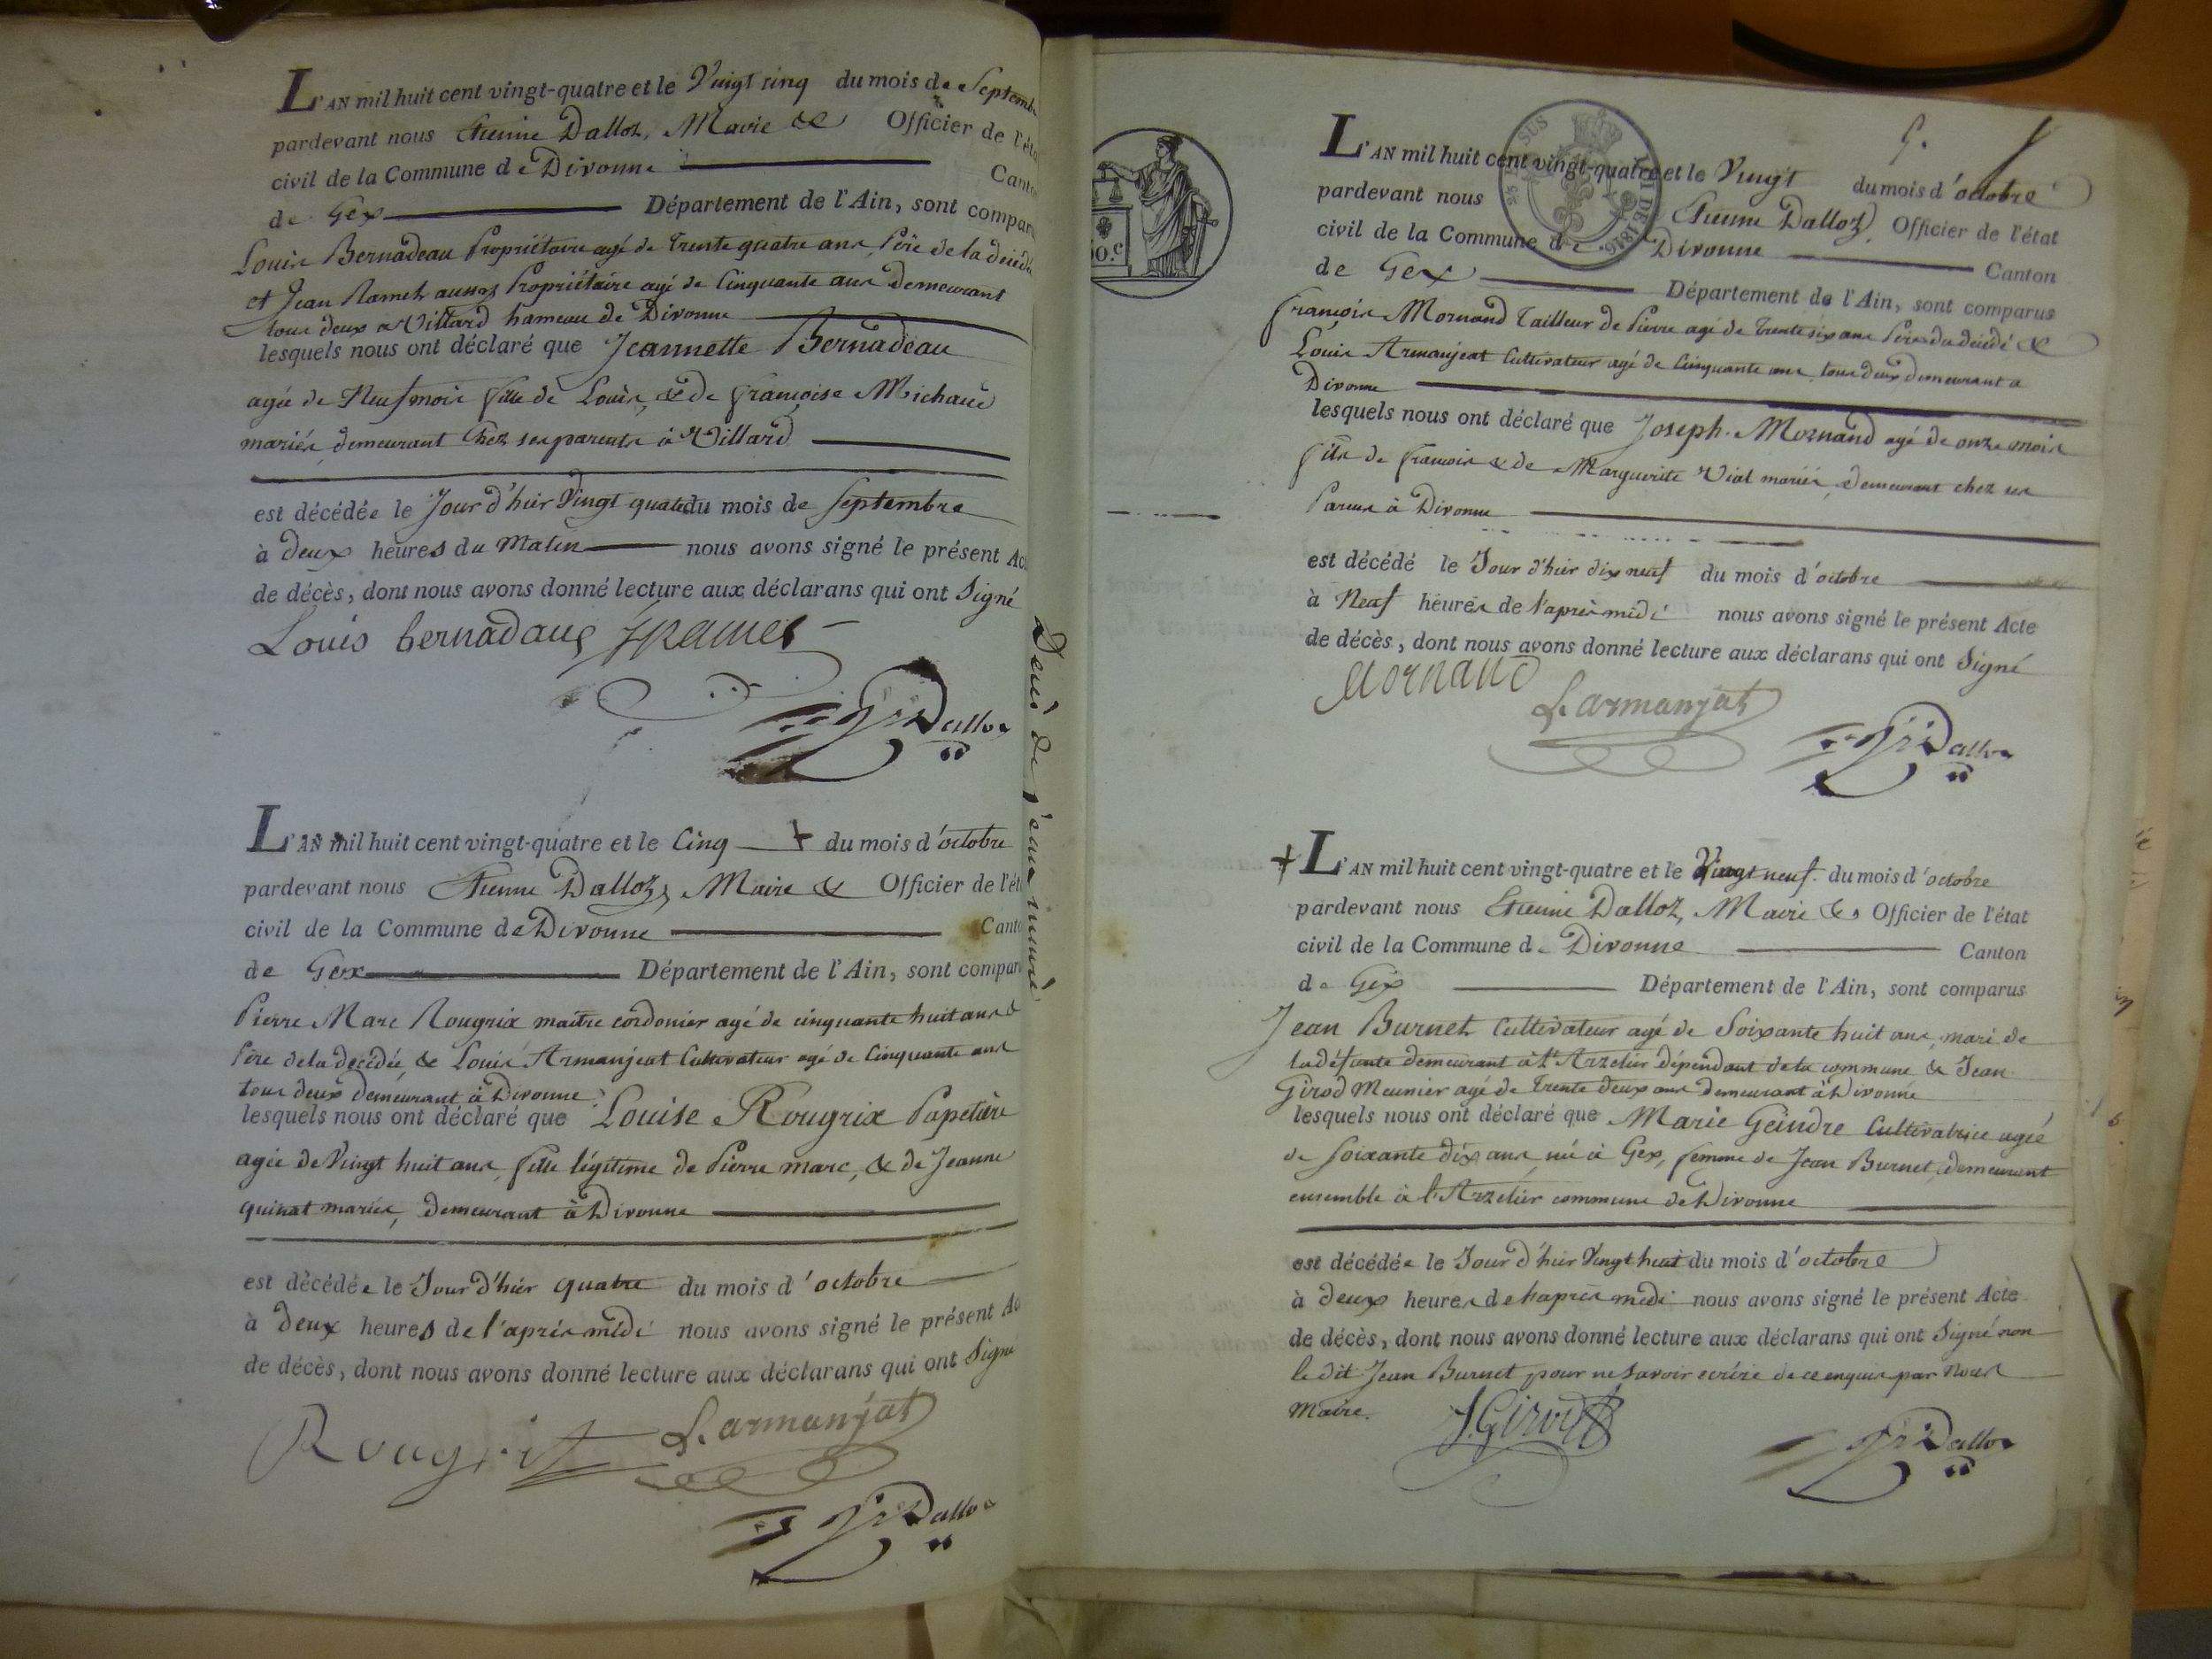 L'AN mil huit cent vingt-quatre et le Vingt cinq du mois de Septemb
pardevant nous Etienne Dalloz, Maire & Officier de l'éta
civil de la Commune de Divonne Canto
de Gex Département de l'Ain, sont compar
Louis Bernadeau Propriétaire agé de Trente quatre ans, Père de la décédé
et Jean Ramel aussy Propriétaire agé de Cinquante ans Demeurant
tous deux a Villard hameau de Divonne
lesquels nous ont déclaré que Jeannette Bernadeau
agée de Neuf mois fille de Louis, & de françoise Michaud
mariés, demeurant Chez ses parents à Villard
est décédée le Jour d'hier Vingt quatre du mois de Septembre
à deux heures du Matin nous avons signé le présent Ac
de décès, dont nous avons donné lecture aux déclarans qui ont Signé
Louis bernadauz
Dalloz
L'AN mil huit cent vingt-quatre et le Cinq du mois d'octobre
pardevant nous Etienne Dalloz, Maire & Officier de l'ét
civil de la Commune de Divonne Canto
de Gex Département de l'Ain, sont compar
Pierre Marc Rougrix maitre cordonier agé de cinquante huit ans &
Père de la décédée, & Louis Armanjeat Cultivateur agé de Cinquante ans
tous deux demeurant à Divonne
lesquels nous ont déclaré que Louise Rougrix Papetière
agée de Vingt huit ans, fille légitime de Pierre marc, & de Jeanne
quinat mariés, demeurant à Divonne
est décédée le Jour d'hier quatre du mois d'octobre
à deux heures de l'après midi nous avons signé le présent Ac
de décès, dont nous avons donné lecture aux déclarans qui ont Signé
Rougrix L. armanjat
Dalloz
5.
L'AN mil huit cent vingt-quatre et le Vingt du mois d'octobre
pardevant nous Etienne Dalloz, Officier de l'état
civil de la Commune de Divonne
Canton
de Gex Département de l'Ain, sont comparus
françois Mornand Tailleur de Pierre agé de Trente six ans Père du décédé &
Louis Armanjeat Cultivateur agé de Cinquante ans, tous deux demeurant a
Divonne
lesquels nous ont déclaré que Joseph Mornand agé de onze mois
fils de francois & de Marguerite Vial mariés, Demeurant chez ses
Parens à Divonne
est décédé le Jour d'hier dix neuf du mois d'octobre
à Neuf heures de l'après midi nous avons signé le présent Acte
de décès, dont nous avons donné lecture aux déclarans qui ont Signé
Mornand
L. armanjat
Dalloz
L'AN mil huit cent vingt-quatre et le Vingt neuf du mois d'octobre
pardevant nous Etienne Dalloz, Maire & Officier de l'état
civil de la Commune de Divonne Canton
de Gex Département de l'Ain, sont comparus
Jean Burnet Cultivateur agé de Soixante huit ans, mari de
la défunte demeurant à l'Arzelier dépendant de la commune & Jean
Girod Meunier agé de Trente deux ans demeurant à Divonne
lesquels nous ont déclaré que Marie Geindre Cultivatrice agée
de Soixante dix ans, née à Gex, femme de Jean Burnet, demeurant
ensemble à l'Arzelier commune de Divonne
est décédée le Jour d'hier Vingt huit du mois d'octobre
à deux heures de l'après midi nous avons signé le présent Acte
de décès, dont nous avons donné lecture aux déclarans qui ont Signé non
le dit Jean Burnet pour ne savoir ecrire de ce enquis par Nous
Maire.
J. Girod
Dalloz